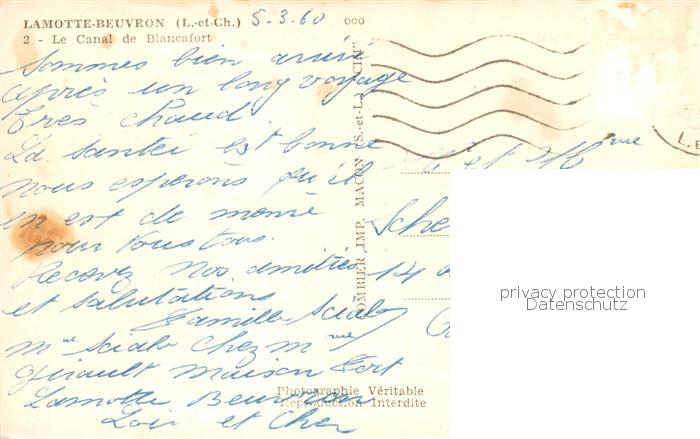 LAMOTTE-BEUVRON (L.-et-Ch.) 5-3.60
2 - Le Canal de Blancafort
Sommes bien arrivé
après un long voyage
très chaud.
La santé est bonne
nous espérons qu'il
en est de meme
pour vous tous.
Recevez nos amitiés
et salutations
Famille Scialo
Mme Scialo chez Mr
Girault maison Fort
Lamotte Beuvron
Loir et Cher
COMBIER IMP. MACON (S.-et-L.) "CIM"
Mr et Mme
Sche
14
Photographie Véritable
Reproduction Interdite
privacy protection
Datenschutz